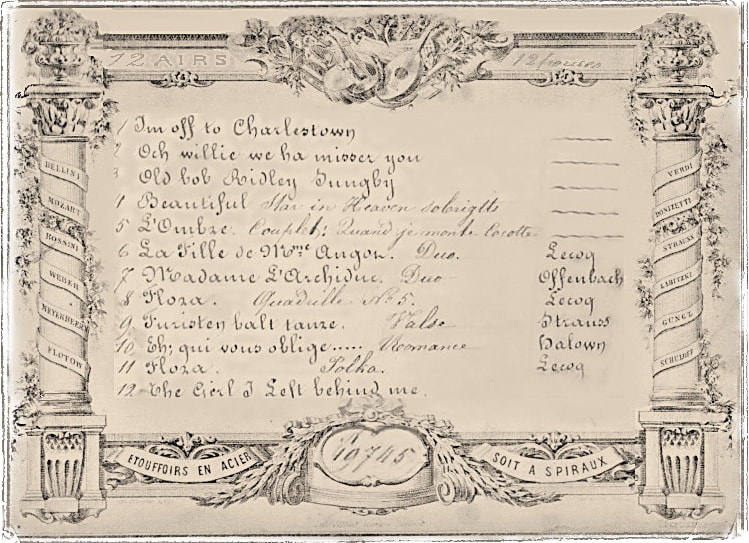 12 AIRS
12 fcuses
1 I'm off to Charlestown
2 Och willie we ha misser you
3 Old bob Ridley Sungby
4 Beautiful Star in Heaven sobrigtts
5 L'Ombre. Couplet: Quand je monte Cocotte
6 La Fille de Mme Angou. Duo. Lecoq
7 Madame L'Archiduc. Duo Offenbach
8 Floza. Quadrille No 5. Lecoq
9 Furisten balt tanze. Valse Strauss
10 Eh; qui vous oblige..... Romance Dalown
11 Floza. Polka. Lecoq
12 The Girl I Left behind me.
BELLINI
MOZART
ROSSINI
WEBER
MEYERBEER
FLOTOW
VERDI
DONIZETTI
STRAUSS
LABITZKI
GUNGL
SCHULHOFF
ETOUFFOIRS EN ACIER
19745
SOIT A SPIRAUX